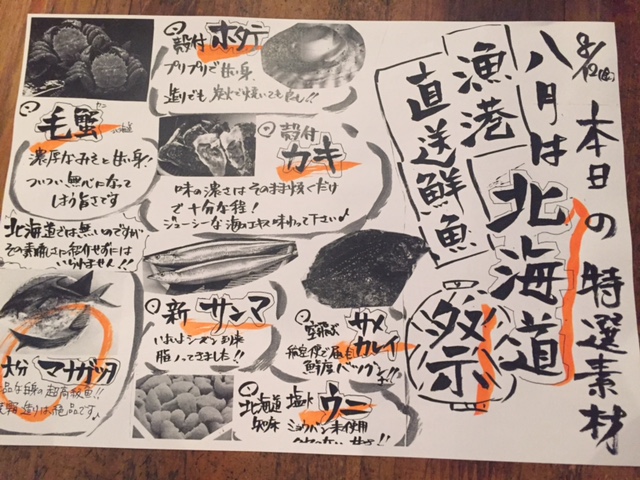 8/12(金)
本日の特選素材
八月は北海道祭
漁港
直送鮮魚
殻付 ホタテ
プリプリで甘い身、
造りでも炭火で焼いても良し!!
毛蟹
濃厚なみそと甘い身!
ついつい無心になって
しまう旨さです
殻付
カキ
味の濃さはそのまま焼くだけ
で十分な程!
ジューシーな海のエキス味わって下さい♪
北海道では無いのですが
その素晴しさに紹介せずには
いられません!!
大分 マナガツオ
新 サンマ
いよいよシーズン到来
脂のってきました!!
サメ
カレイ
航空便で届く
鮮度バツグン!!
北海道 塩水 ウニ
ミョウバン未使用